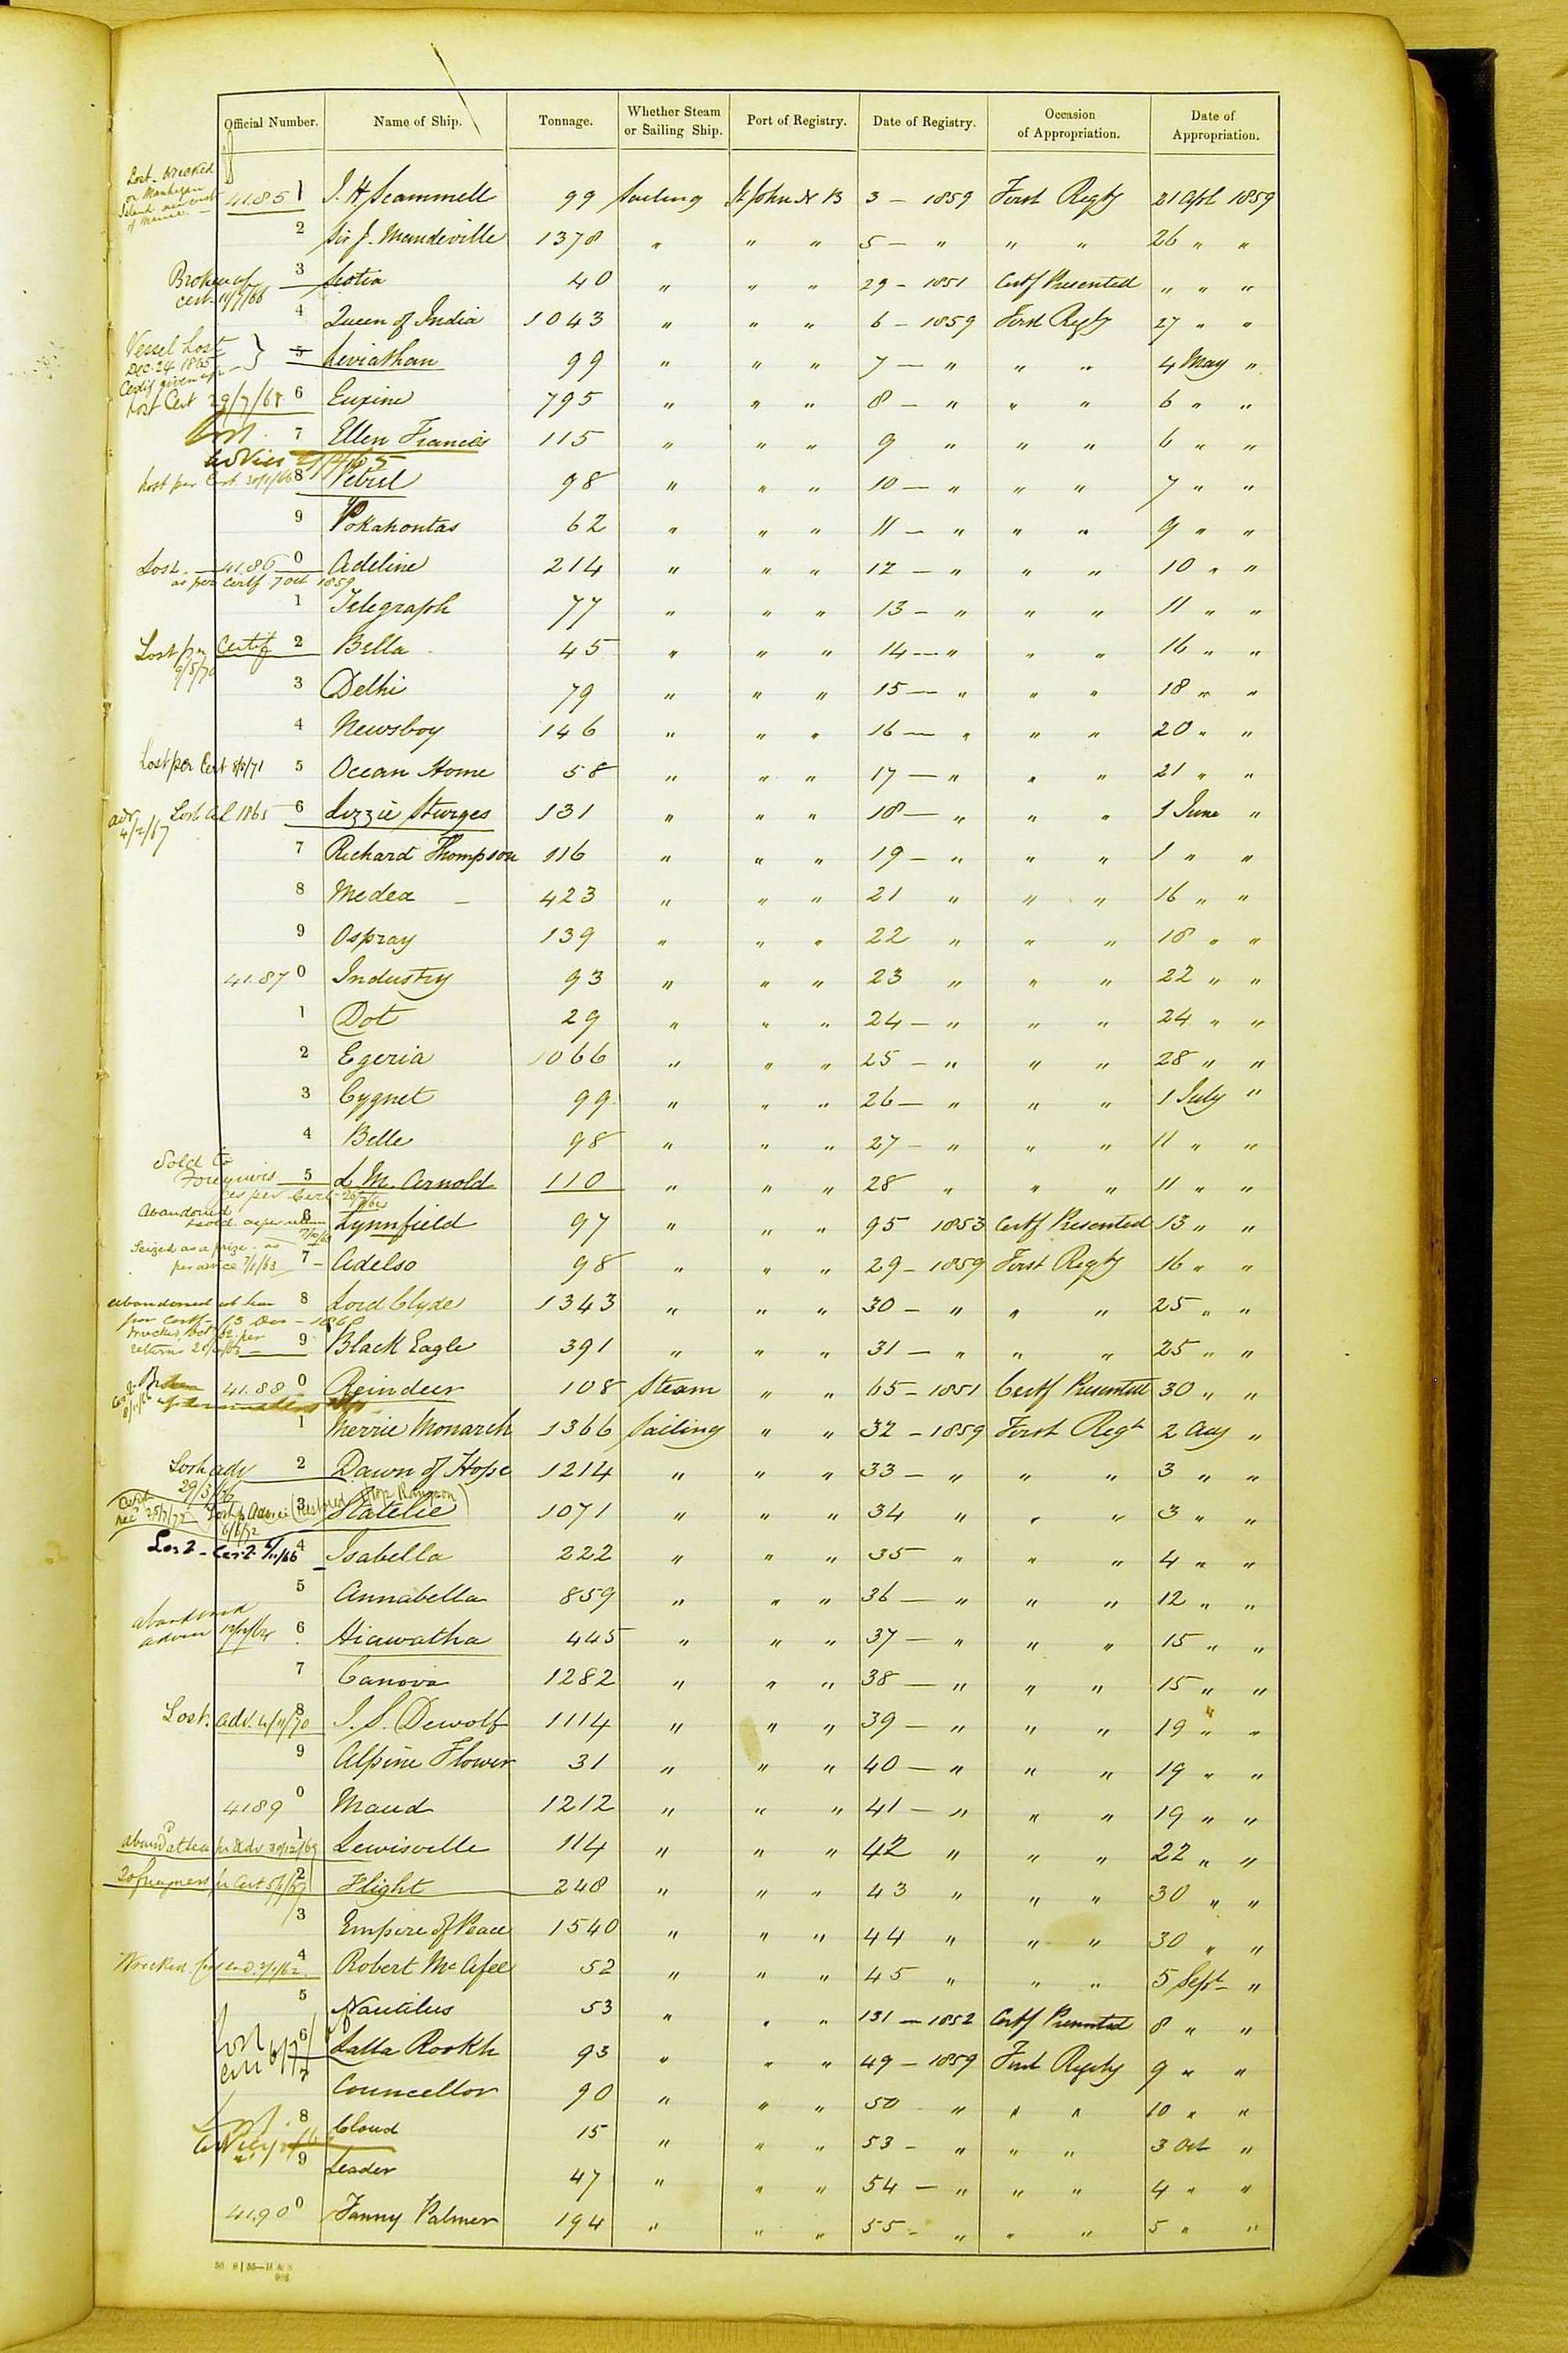 Official Number. Name of Ship. Tonnage. Whether Steam or Sailing Ship. Port of Registry. Date of Registry. Occasion of Appropriation. Date of Appropriation.
Lost wrecked on Manhegan Island
41.85 1 J. H. Scammell 99 Sailing St John N B 3 — 1859 First Regty 21 Apl 1859
2 Sir J. Mandeville 1378 " " " 5 — " " " 26 " "
Broken up cert 3 Scotia 40 " " " 29 - 1851 Certf Presented " " "
4 Queen of India 1043 " " " 6 - 1859 First Regty 27 " "
Vessel Lost Dec. 24 1865 5 Leviathan 99 " " " 7 — " " " 4 May "
Lost Cert 29/7/68 6 Euxine 795 " " " 8 — " " " 6 " "
Lost 7 Ellen Francis 115 " " " 9 " " " 6 " "
Lost per Cert. 8 Petrel 98 " " " 10 — " " " 7 " "
9 Pokahontas 62 " " " 11 — " " " 9 " "
Lost 41.86 0 Adeline 214 " " " 12 — " " " 10 " "
as per Certf 7 Oct 1859
1 Telegraph 77 " " " 13 — " " " 11 " "
Lost per Certif 9/5/70 2 Bella 45 " " " 14 — " " " 16 " "
3 Delhi 79 " " " 15 — " " " 18 " "
4 Newsboy 146 " " " 16 — " " " 20 " "
Lost per Cert 5 Ocean Home 58 " " " 17 — " " " 21 " "
adv 4/2/67 Lost 1865 6 Lizzie Sturges 131 " " " 18 — " " " 1 June "
7 Richard Thompson 116 " " " 19 — " " " 1 " "
8 Medea — 423 " " " 21 " " " 16 " "
9 Ospray 139 " " " 22 " " " 18 " "
41.87 0 Industry 93 " " " 23 " " " 22 " "
1 Dot 29 " " " 24 — " " " 24 " "
2 Egeria 1066 " " " 25 — " " " 28 " "
3 Cygnet 99 " " " 26 — " " " 1 July "
4 Belle 98 " " " 27 — " " " 11 " "
Sold to Foreigners as per Cert 5 L M. Arnold 110 " " " 28 " " " 11 " "
Abandoned 6 Lynnfield 97 " " " 95 1853 Certf Presented 13 " "
Seized as a prize as per advice 7/1/63 7 Adelso 98 " " " 29 - 1859 First Regty 16 " "
abandoned at sea per Certf 13 Dec 8 Lord Clyde 1343 " " " 30 — " " " 25 " "
9 Black Eagle 391 " " " 31 — " " " 25 " "
41.88 0 Reindeer 108 Steam " " 65 - 1851 Certf Presented 30 " "
1 Merrie Monarch 1366 Sailing " " 32 - 1859 First Regt 2 Aug "
Lost adv 29/3/66 2 Dawn of Hope 1214 " " " 33 — " " " 3 " "
3 Statelie 1071 " " " 34 " " " 3 " "
Lost - Cert 4 Isabella 222 " " " 35 " " " 4 " "
5 Annabella 859 " " " 36 — " " " 12 " "
abandoned advice 6 Hiawatha 445 " " " 37 — " " " 15 " "
7 Canova 1282 " " " 38 — " " " 15 " "
Lost. Adv. 4/11/70 8 J. S. Dewolf 1114 " " " 39 — " " " 19 " "
9 Alpine Flower 31 " " " 40 — " " " 19 " "
4189 0 Maud 1212 " " " 41 — " " " 19 " "
abandd at sea pr Adv 1 Lewisville 114 " " " 42 " " " 22 " "
To foreigners pr Cert 2 Flight 248 " " " 43 " " " 30 " "
3 Empire of Peace 1540 " " " 44 " " " 30 " "
Wrecked 4 Robert McAfee 52 " " " 45 " " " 5 Sept "
5 Nautilus 53 " " " 131 — 1852 Certf Presented 8 " "
Lost 6 Lalla Rookh 93 " " " 49 - 1859 First Regty 9 " "
7 Councellor 90 " " " 50 " " " 10 " "
8 Cloud 15 " " " 53 - " " " 3 Oct "
9 Leader 47 " " " 54 — " " " 4 " "
4190 0 Fanny Palmer 194 " " " 55 - " " " 5 " "